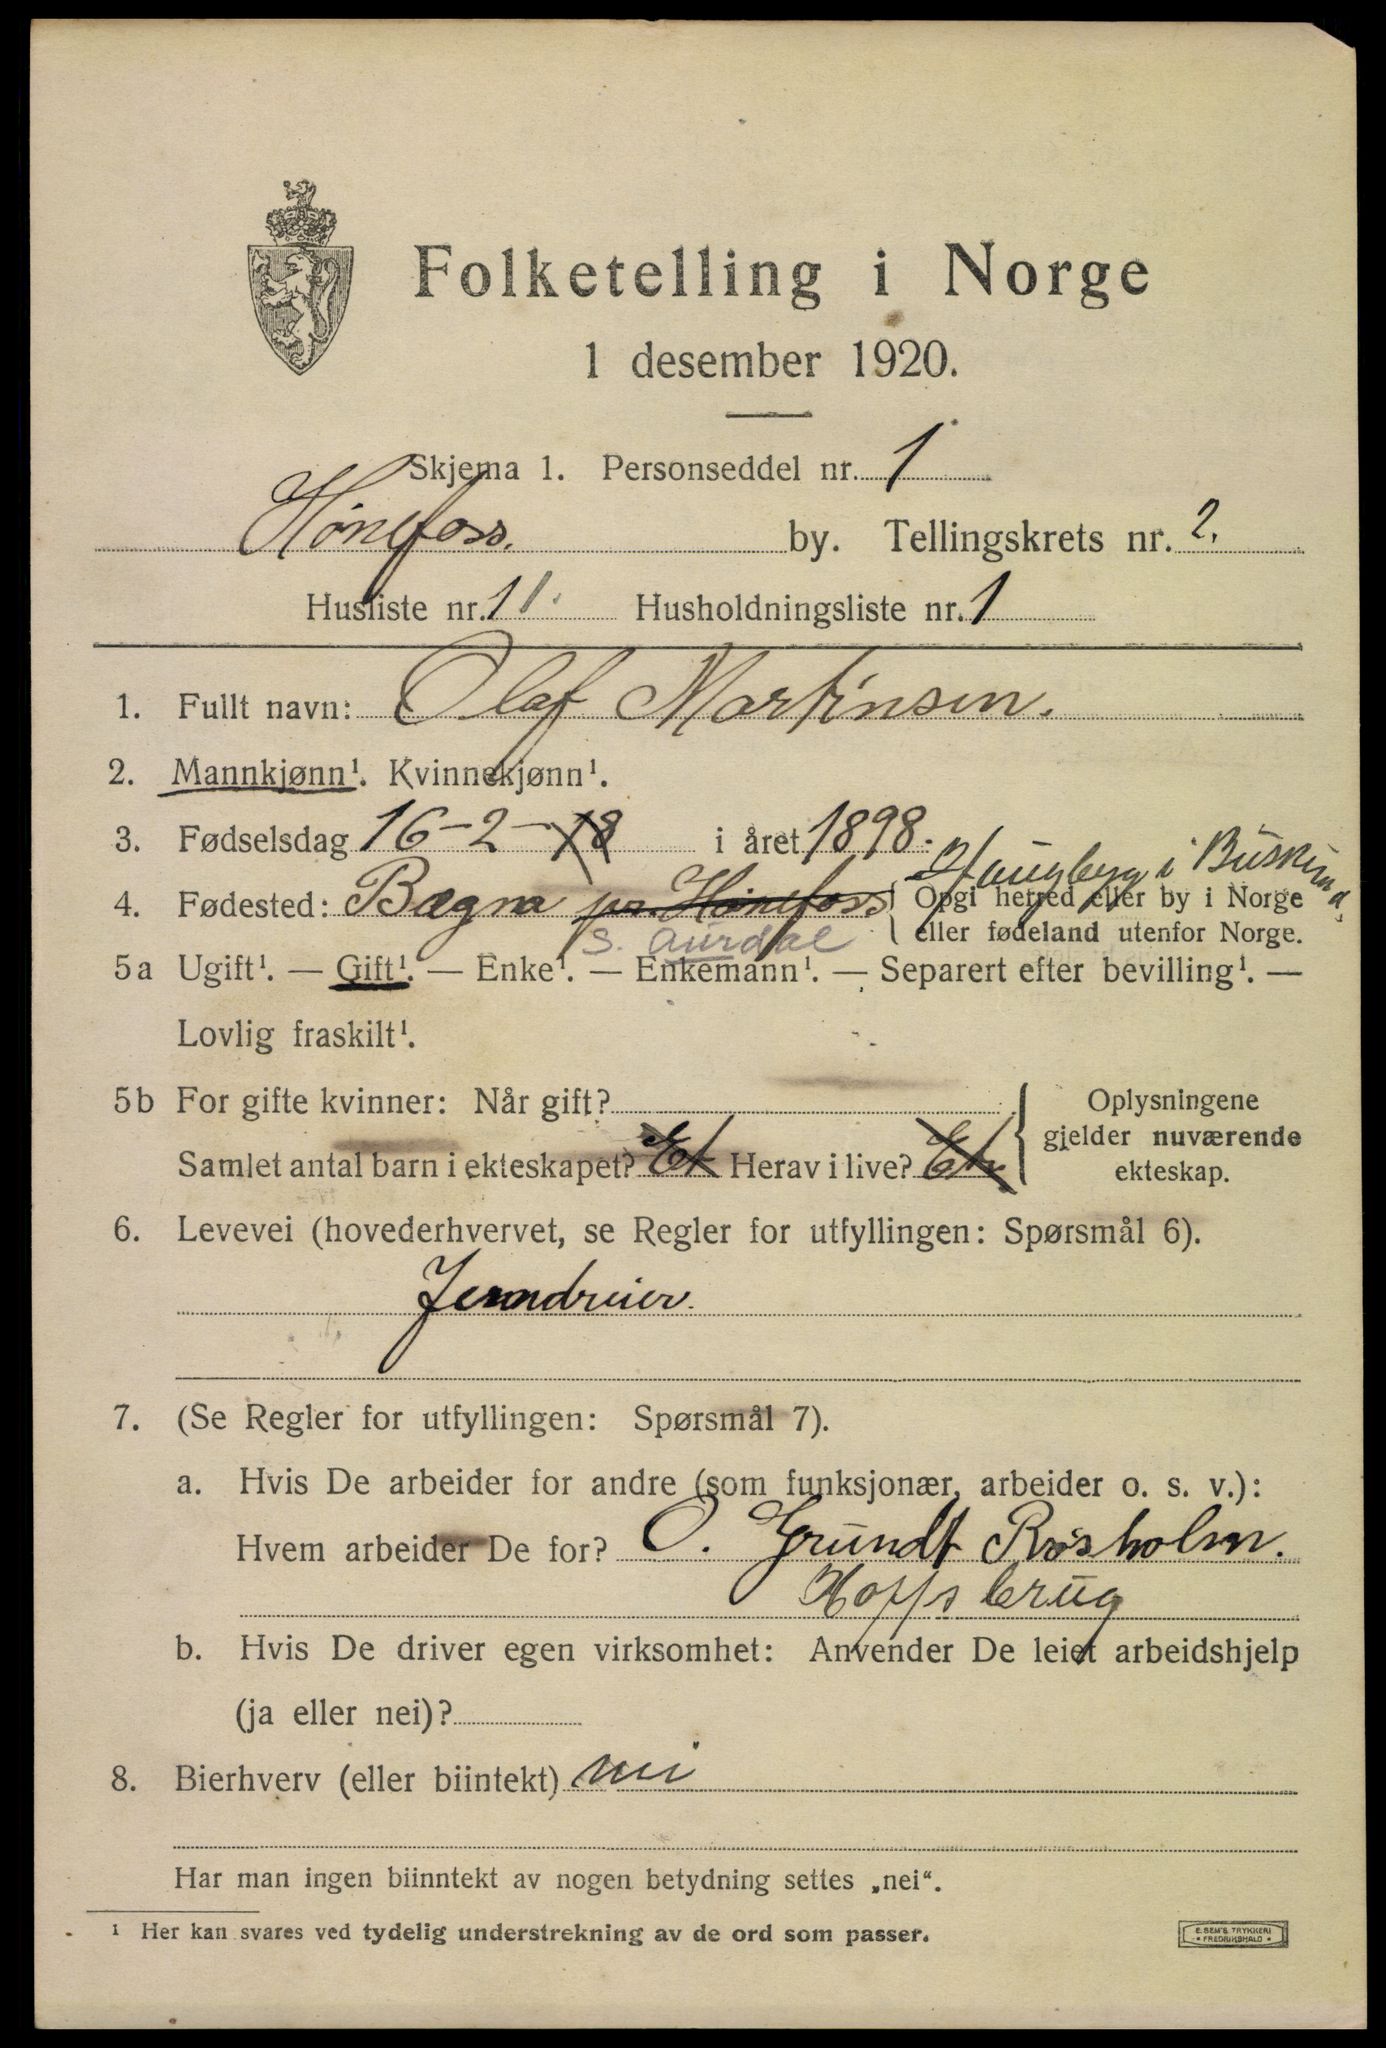 Folketelling i Norge
1 desember 1920.
Skjema 1. Personseddel nr. 1
Hønefoss. by. Tellingskrets nr. 2.
Husliste nr. 11. Husholdningsliste nr. 1
1. Fullt navn: Olaf Martinsen.
2. Mannkjønn¹. Kvinnekjønn¹.
3. Fødselsdag 16-2-18 i året 1898.
Haugberg i Buskerud,
4. Fødested: Bagna pr. Hønefoss { Opgi herred eller by i Norge
S. Aurdal eller fødeland utenfor Norge.
5a Ugift¹. — Gift¹. — Enke¹. — Enkemann¹. — Separert efter bevilling¹. —
Lovlig fraskilt¹.
5b For gifte kvinner: Når gift? } Oplysningene
gjelder nuværende
Samlet antal barn i ekteskapet? Et Herav i live? Et. ekteskap.
6. Levevei (hovederhvervet, se Regler for utfyllingen: Spørsmål 6).
Jerndreier.
7. (Se Regler for utfyllingen: Spørsmål 7).
a. Hvis De arbeider for andre (som funksjonær, arbeider o. s. v.):
Hvem arbeider De for? O. Grundt Rosholm.
Hoffsbrug
b. Hvis De driver egen virksomhet: Anvender De leiet arbeidshjelp
(ja eller nei)?
8. Bierhverv (eller biintekt) nei
Har man ingen biinntekt av nogen betydning settes „nei“.
¹ Her kan svares ved tydelig understrekning av de ord som passer.
E. SEM'S TRYKKERI
• FREDRIKSHALD •